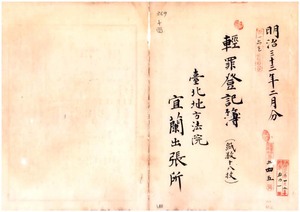 明治三十三年二月分
輕罪登記簿
(紙数十八枚)
臺北地方法院
宜蘭出張所